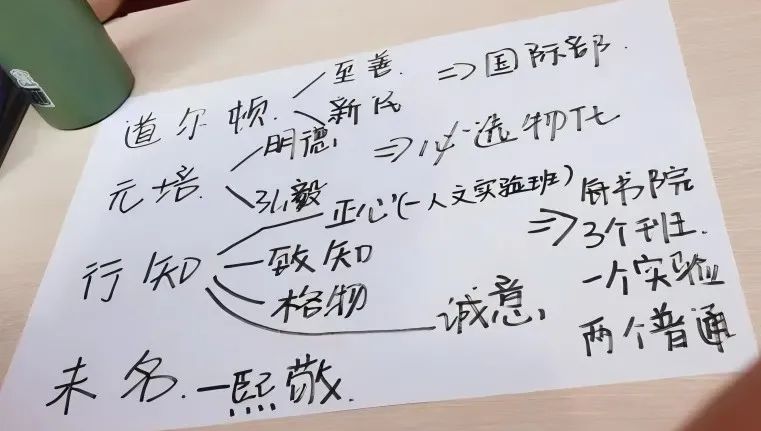 至善.
道尔顿. ⇒国际部.
新民
明德,
元培. ⇒必选物化
弘毅
正心(一人文实验班)
行知 一致知
格物
诚意,
⇒每书院
3个班.
一个实验
两个普通
未名.一熙敬.